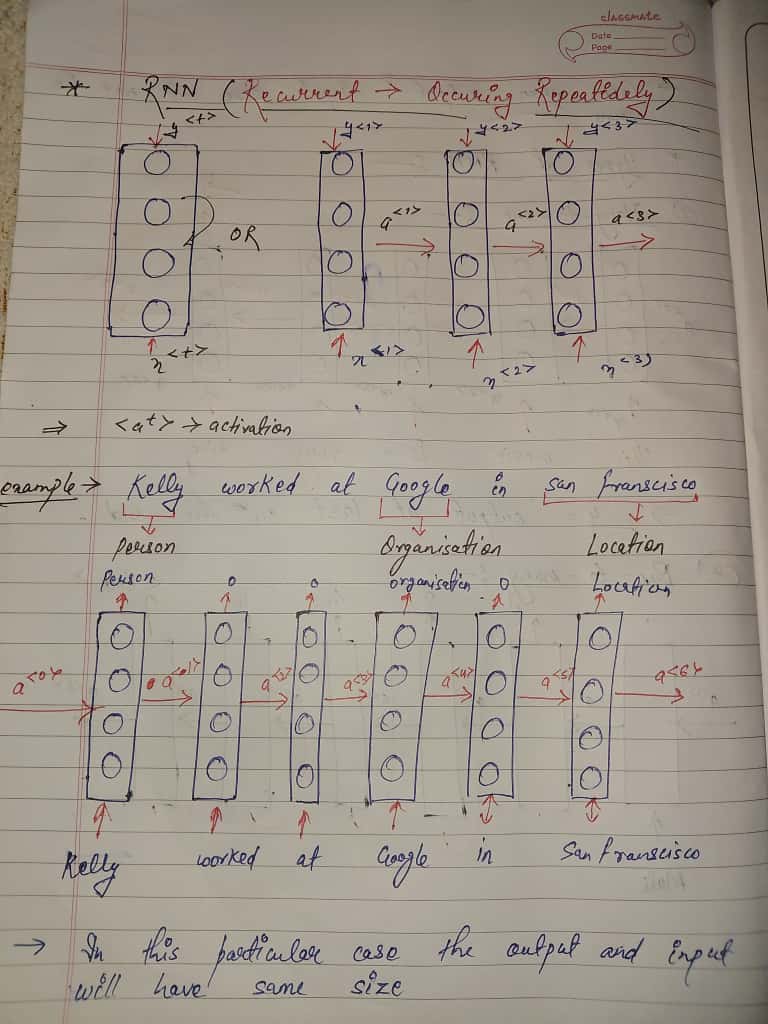 classmate
Date
Page
* RNN (Recurrent → Occuring Repeatidely)
y<t> y<1> y<2> y<3>
OR a<1> a<2> a<3>
x<t> x<1> x<2> x<3>
⇒ <at> → activation
example → Kelly worked at Google in san franscisco
Person Organisation Location
Person o o organisation o Location
a<0> a<1> a<2> a<3> a<4> a<5> a<6>
Kelly worked at Google in San franscisco
→ In this particular case the output and input
will have same size